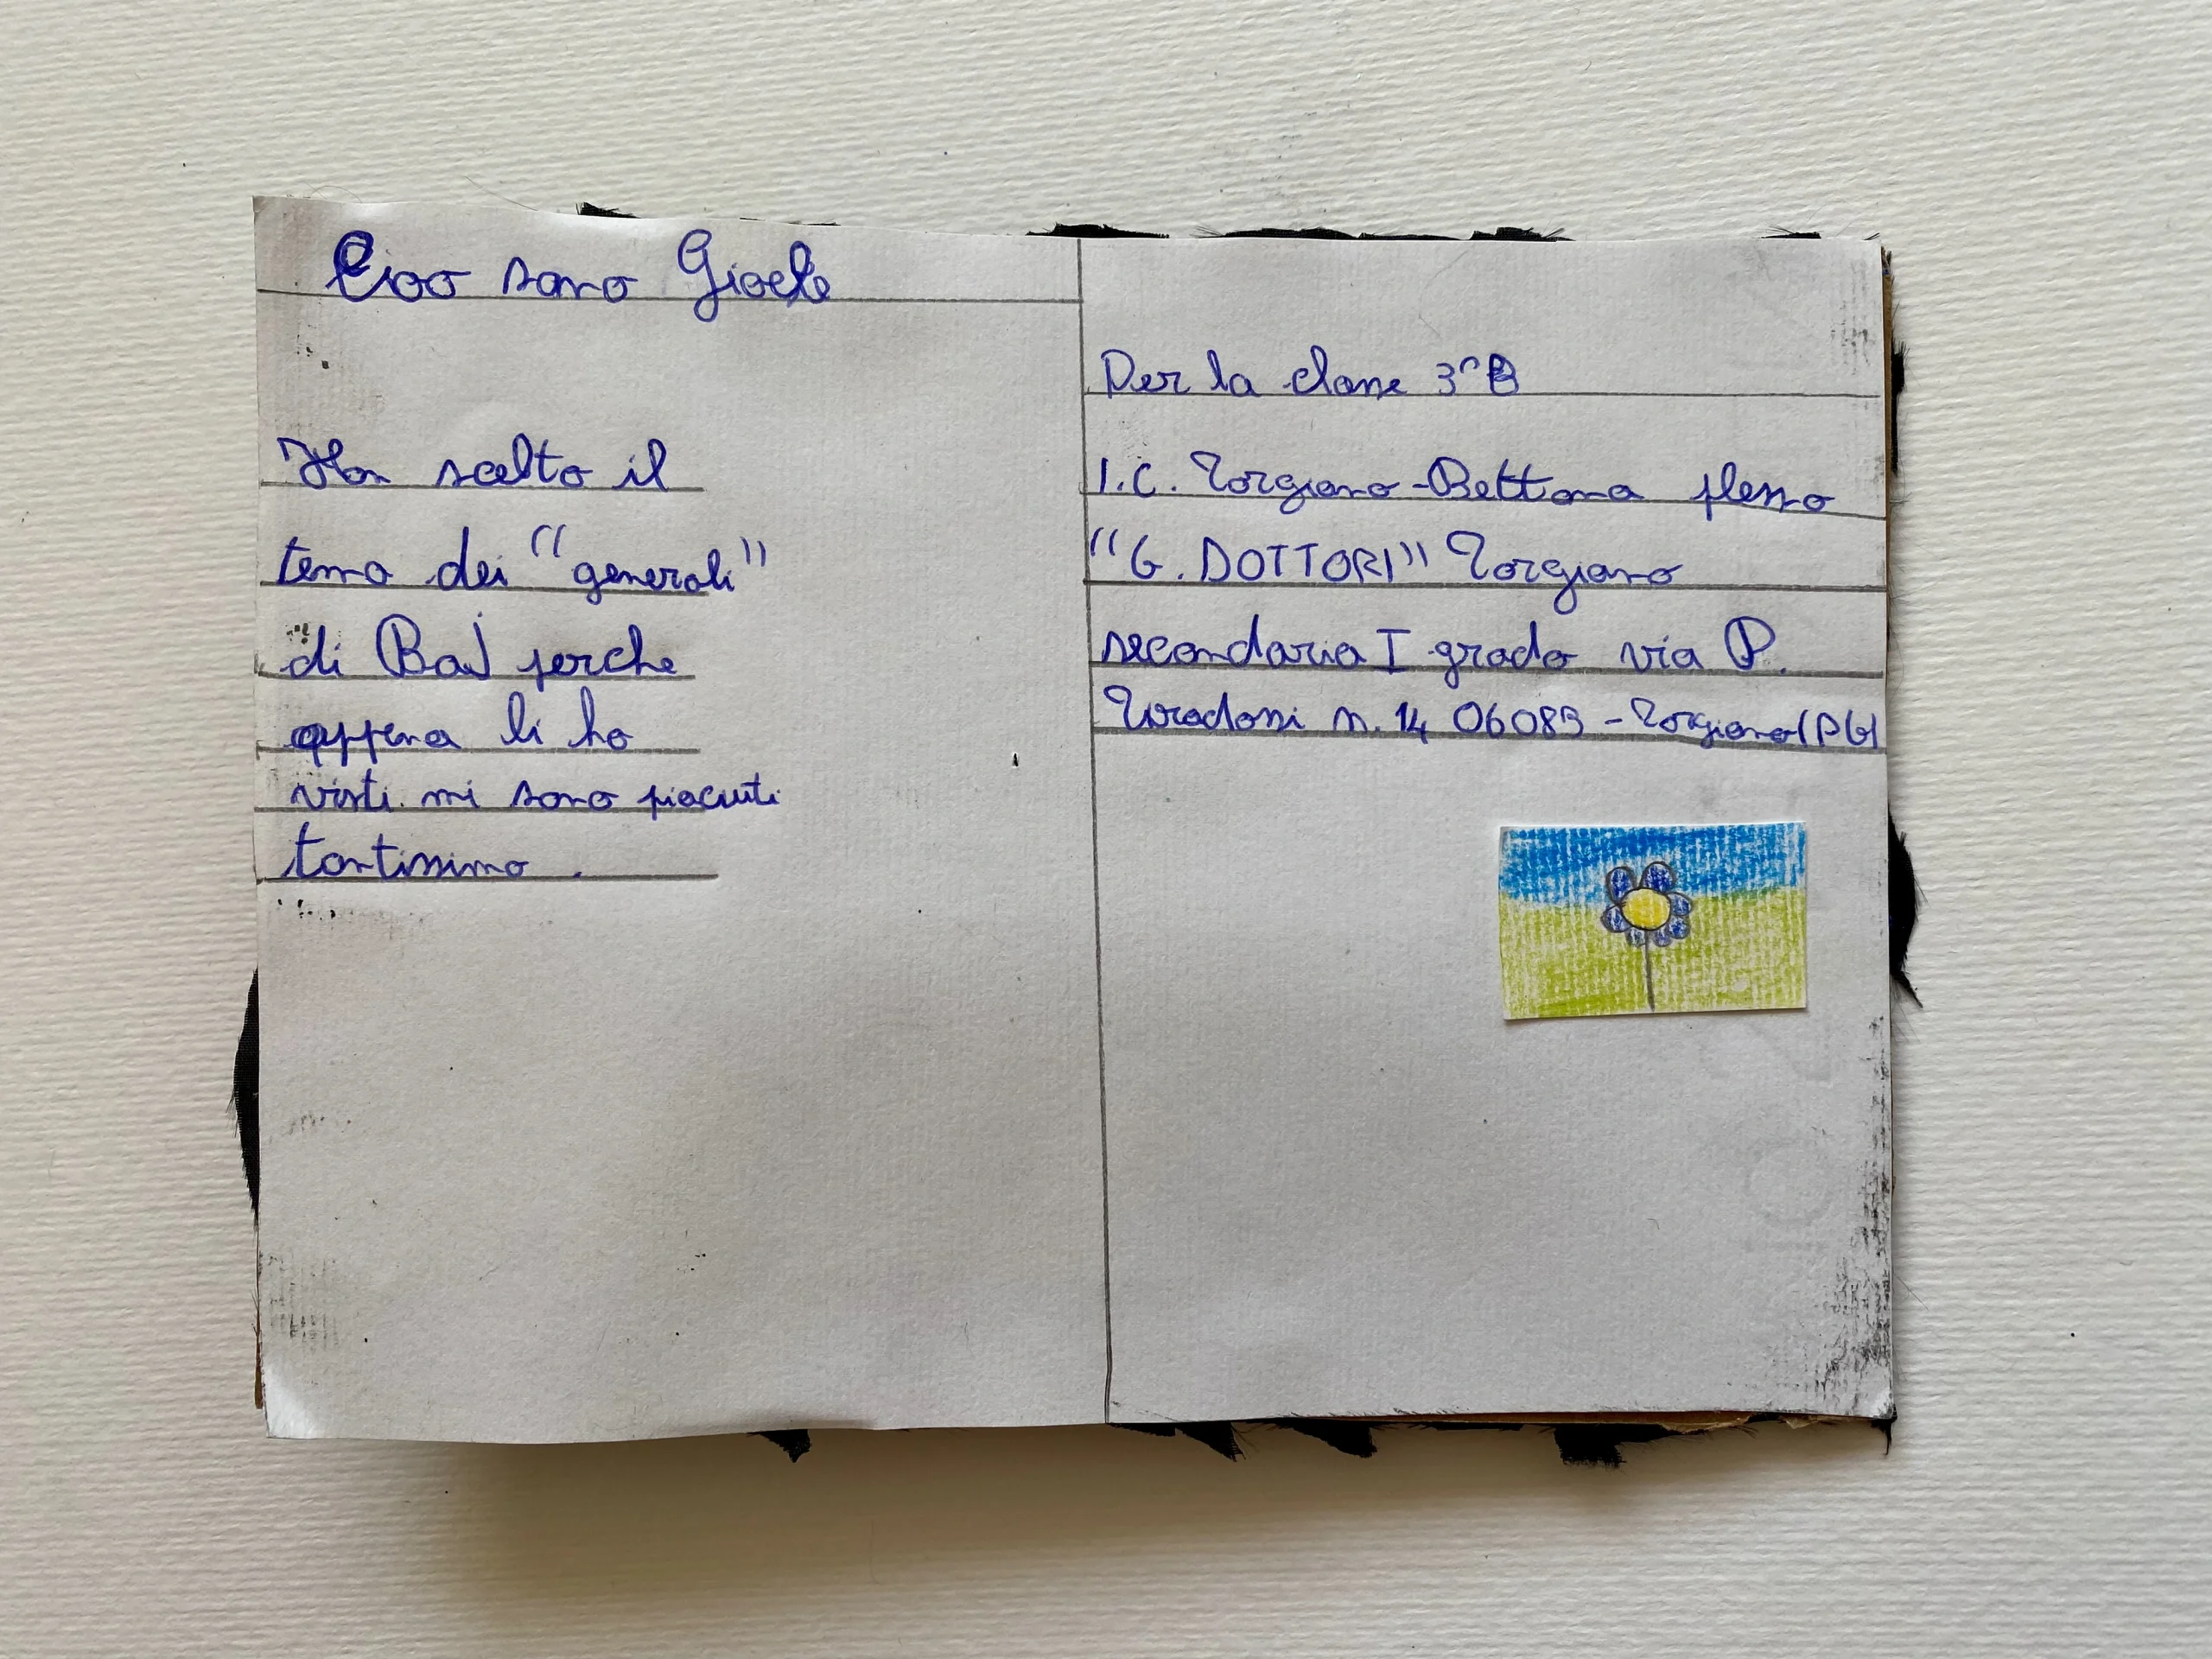 Ciao sono Gioele
Ho scelto il
tema dei "generali"
di Baj perche
appena li ho
visti mi sono piaciuti
tantissimo.
Per la classe 3^B
I.C. Torgiano-Bettona plesso
"G. DOTTORI" Torgiano
secondaria I grado via P.
n. 14 06089 - Torgiano (PG)